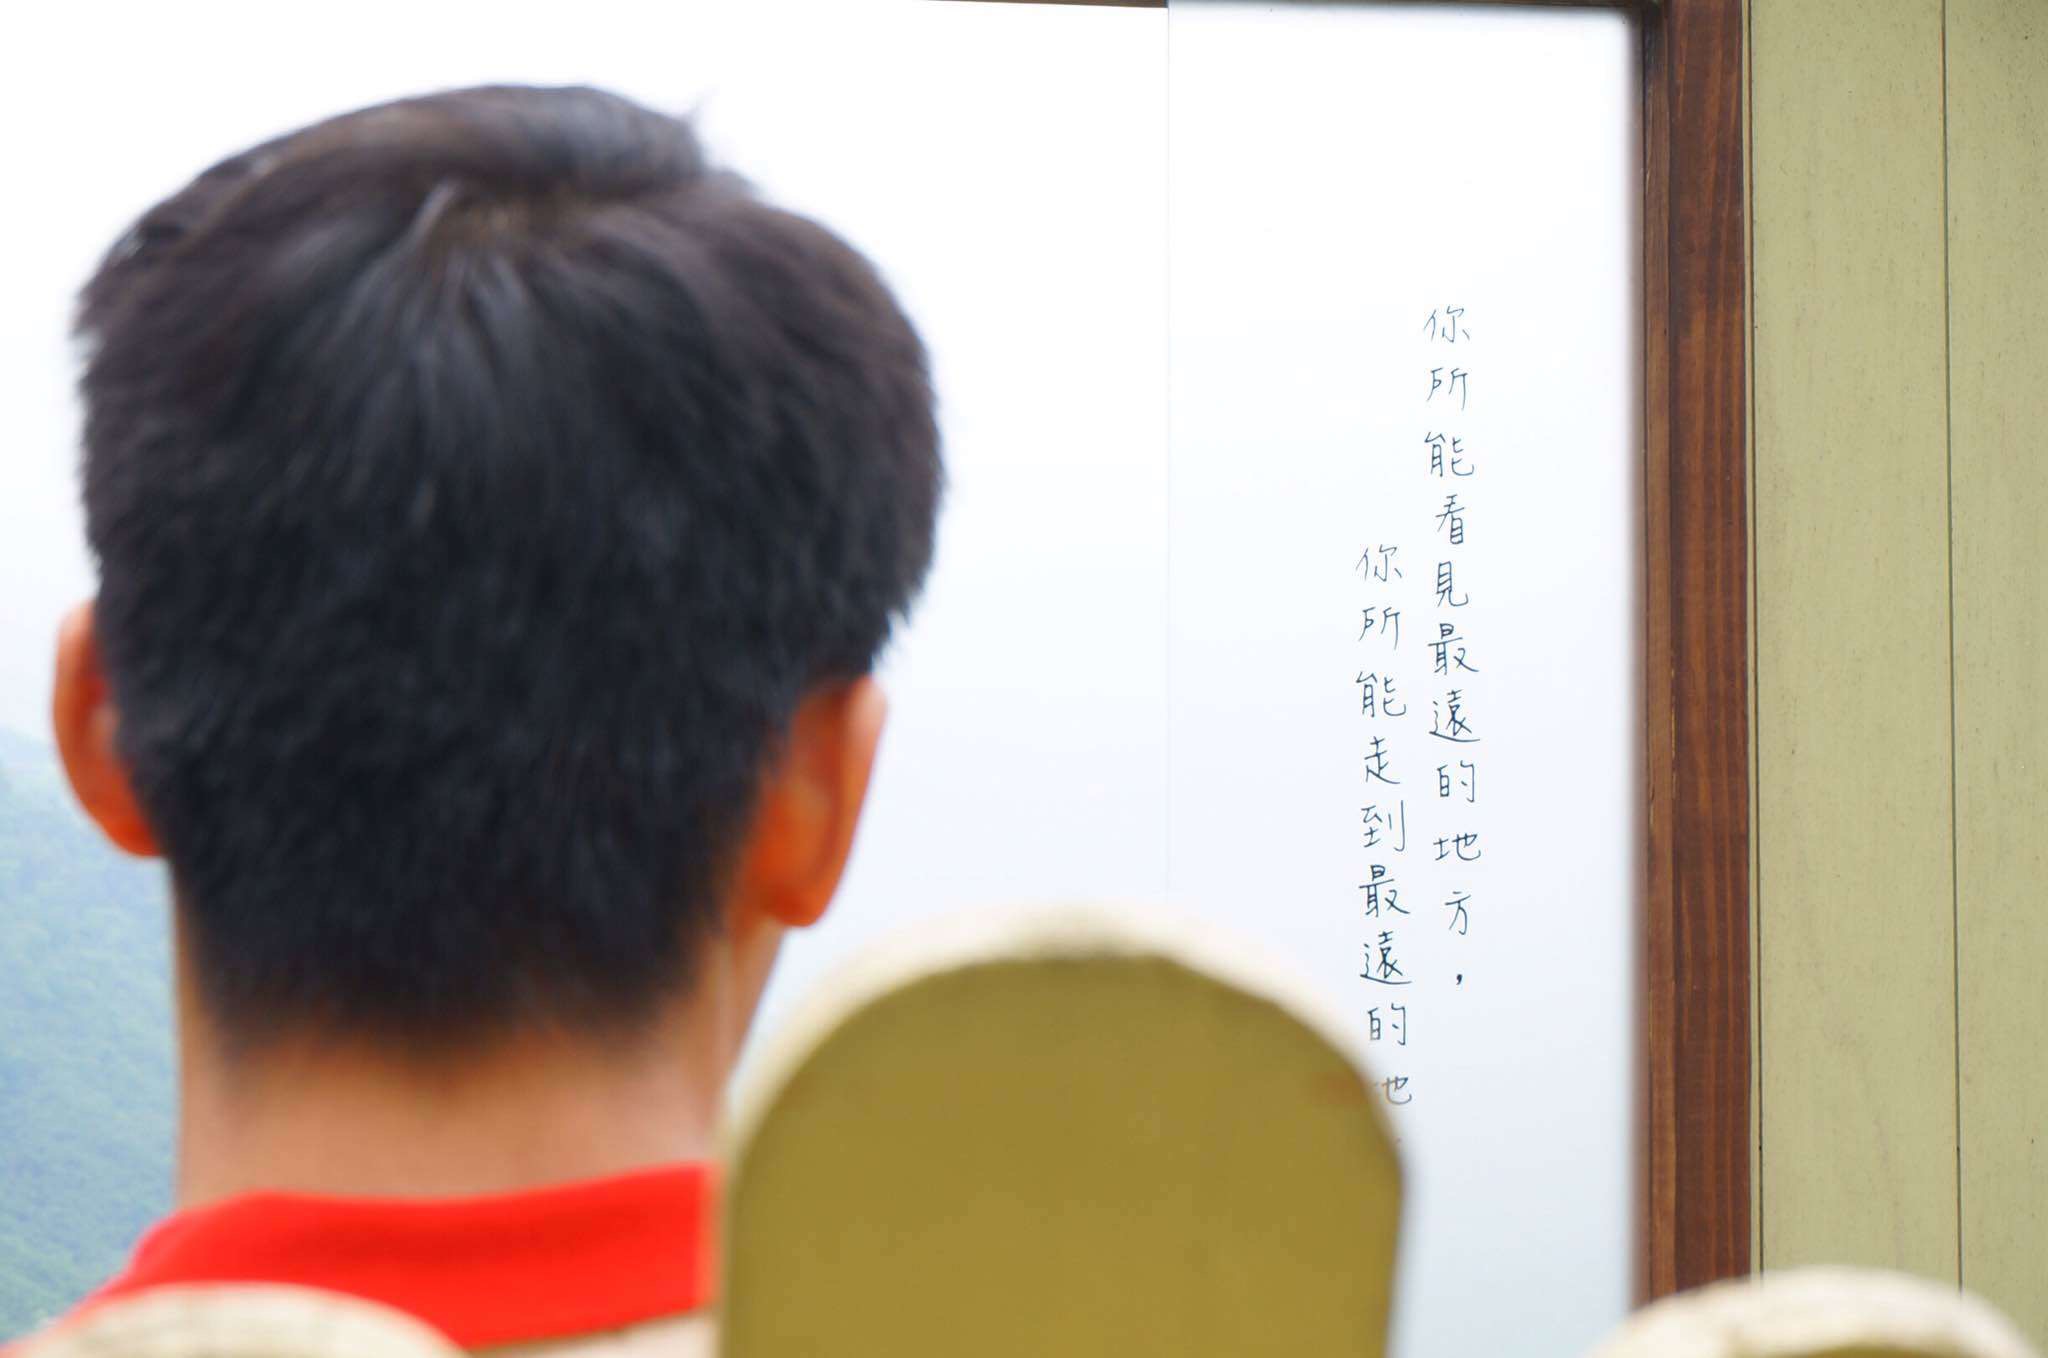 你所能看見最遠的地方，
你所能走到最遠的地